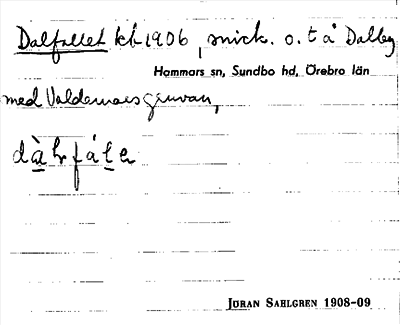 Dalfallet kh 1906, snick. o. t å Dalby
Hammars sn, Sundbo hd, Örebro län
med Valdemarsgruvan,
JÖRAN SAHLGREN 1908-09